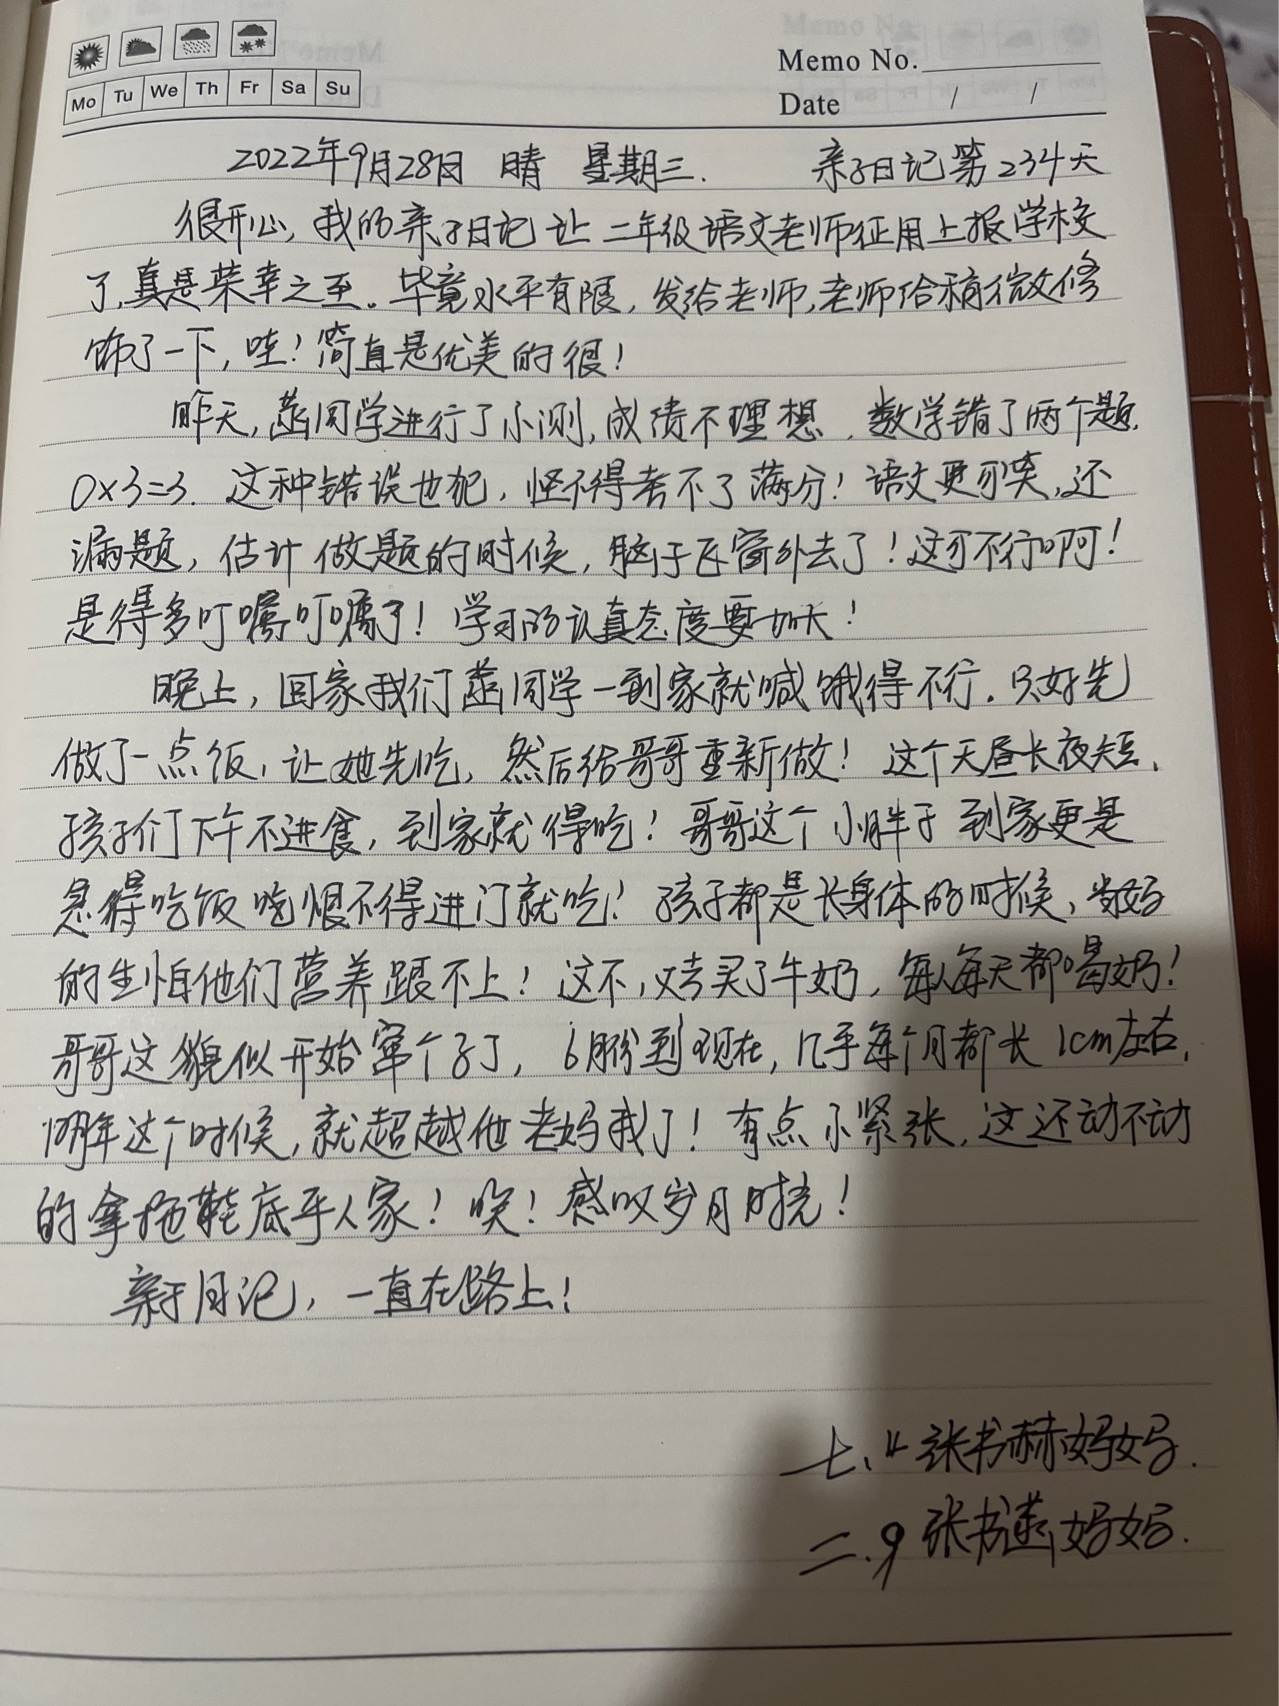 Mo Tu We Th Fr Sa Su
Memo No.
Date / /
2022年9月28日 晴 星期三. 亲子日记第234天
很开心,我的亲子日记让二年级语文老师征用上报学校
了,真是荣幸之至。毕竟水平有限,发给老师,老师给稍微修
饰了一下,哇!简直是优美的很!
昨天,菡同学进行了小测,成绩不理想,数学错了两个题.
0×3=3. 这种错误也犯,怪不得考不了满分!语文更可笑,还
漏题,估计做题的时候,脑子飞窗外去了!这可不行啊!
是得多叮嘱叮嘱了!学习的认真态度要加大!
晚上,回家我们菡同学一到家就喊饿得不行.只好先
做了一点饭,让她先吃,然后给哥哥重新做!这个天昼长夜短,
孩子们下午不进食,到家就得吃!哥哥这个小胖子到家更是
急得吃饭吃恨不得进门就吃!孩子都是长身体的时候,当妈
的生怕他们营养跟不上!这不,又去买了牛奶,每人每天都喝奶!
哥哥这貌似开始窜个子了,6月份到现在,几乎每个月都长1cm左右,
明年这个时候,就超越他老妈我了!有点小紧张,这还动不动
的拿拖鞋底乎人家!唉!感叹岁月时光!
亲子日记,一直在路上!
七.4 张书赫妈妈.
二.9 张书菡妈妈.